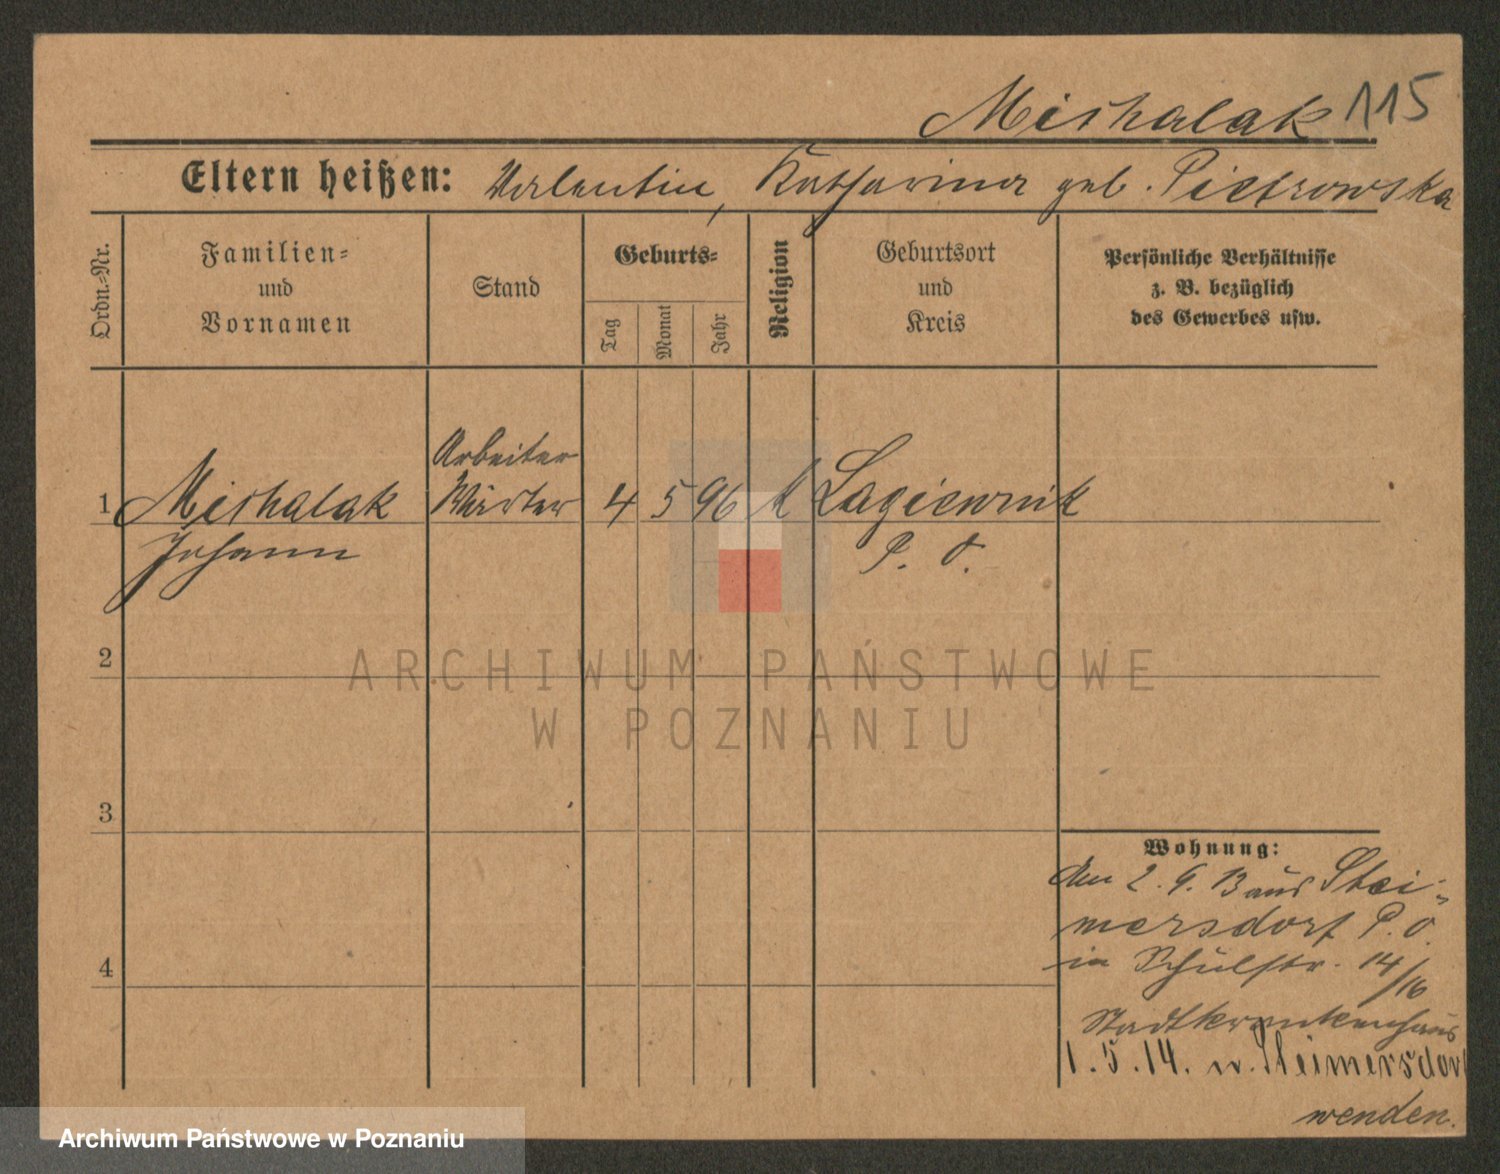 Michalak 115
Eltern heißen: Valentin, Katharina geb. Pietrowska
Ordn.-Nr.
Familien-
und
Vornamen
Stand
Geburts-
Tag
Monat
Jahr
Religion
Geburtsort
und
Kreis
Persönliche Verhältnisse
z. B. bezüglich
des Gewerbes usw.
Arbeiter
1 Michalak Wärter 4 5 96 k Lagiewnik
Johann P. O.
2
3
4
Wohnung:
Am 2. 9. 13 aus Stei-
mersdorf P. O.
in Schulstr. 14/16
Stadtkrankenhaus
1. 5. 14. n. Steimersdorf
wenden.
ARCHIWUM PAŃSTWOWE
W POZNANIU
Archiwum Państwowe w Poznaniu